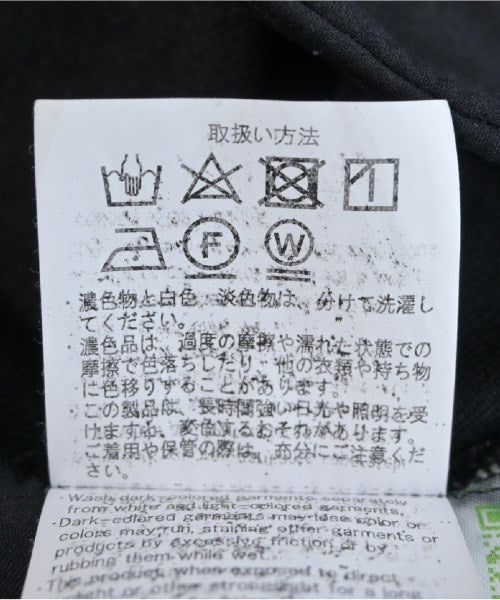 取扱い方法
F W
・濃色物と白色、淡色物は、分けて洗濯し
てください。
・濃色品は、過度の摩擦や濡れた状態での
摩擦で色落ちしたり、他の衣類や持ち物
に色移りすることがあります。
・この製品は、長時間強い日光や照明を受
けますと、変色するおそれがあります。
ご着用や保管の際は、充分にご注意くだ
さい。
・Wash dark-colored garments separately
from white and light-colored garments,
・Dark-colored garments may lose color or
colors may run, staining other garments or
products by excessive friction or by
rubbing them while wet.
・This product, when exposed to direct
light or other strong light for a long